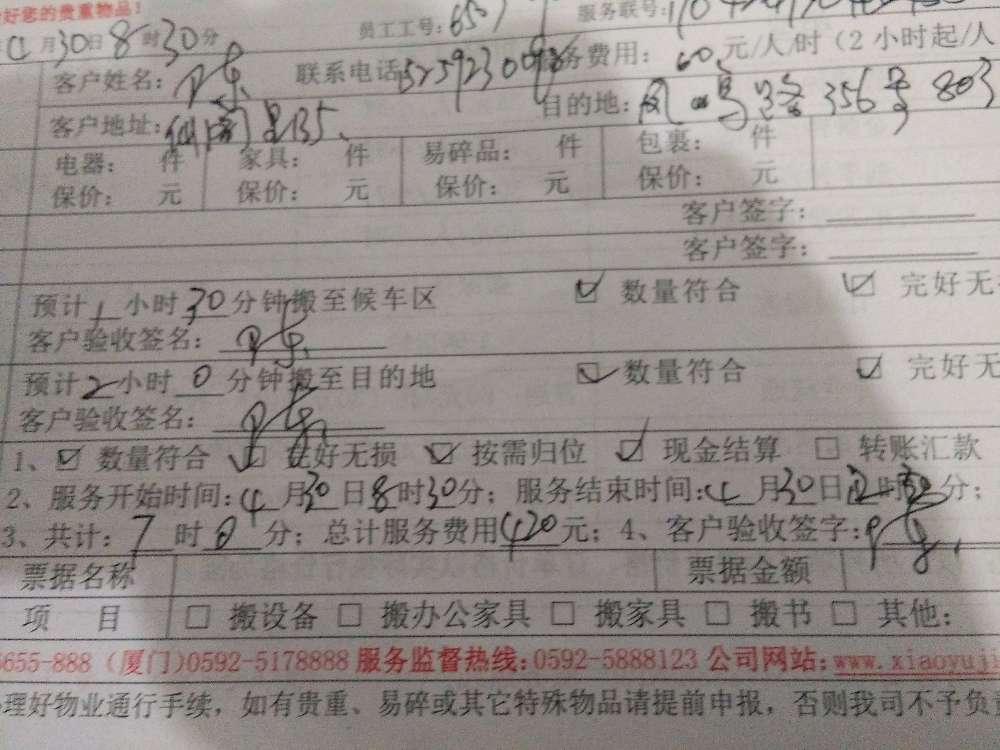 好您的贵重物品！ 员工工号：服务联号：
4月30日8时30分
客户姓名： 联系电话 服务费用：60元/人/时（2小时起/人
客户地址： 目的地：凤 路356号803
电器： 件 家具： 件 易碎品： 件 包裹： 件
保价： 元 保价： 元 保价： 元 保价： 元
客户签字：
客户签字：
预计1小时30分钟搬至候车区 数量符合 完好无
客户验收签名：
预计2小时0分钟搬至目的地 数量符合 完好无
客户验收签名：
1、数量符合 完好无损 按需归位 现金结算 转账汇款
2、服务开始时间：4月30日8时30分；服务结束时间：4月30日 时 分；
3、共计：7时0分；总计服务费用420元；4、客户验收签字：
票据名称 票据金额
项 目 □ 搬设备 □ 搬办公家具 □ 搬家具 □ 搬书 □ 其他：
6655-888（厦门）0592-5178888 服务监督热线：0592-5888123 公司网站：www.xiaoyuji
理好物业通行手续，如有贵重、易碎或其它特殊物品请提前申报，否则我司不予负责